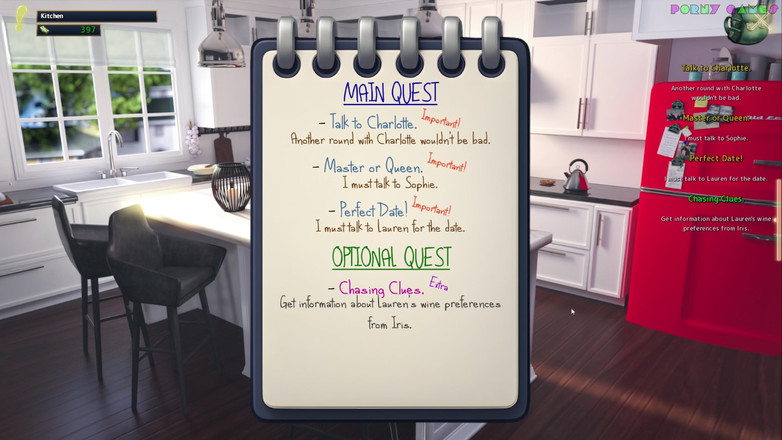 Kitchen
397
PORNY GAMES
MAIN QUEST
- Talk to Charlotte. Important!
Another round with Charlotte wouldn't be bad.
- Master or Queen. Important!
I must talk to Sophie.
- Perfect Date! Important!
I must talk to Lauren for the date.
OPTIONAL QUEST
- Chasing Clues. Extra
Get information about Lauren's wine preferences
from Iris.
Talk to Charlotte.
Another round with Charlotte
wouldn't be bad.
Master or Queen.
I must talk to Sophie.
Perfect Date!
I must talk to Lauren for the date.
Chasing Clues.
Get information about Lauren's wine
preferences from Iris.